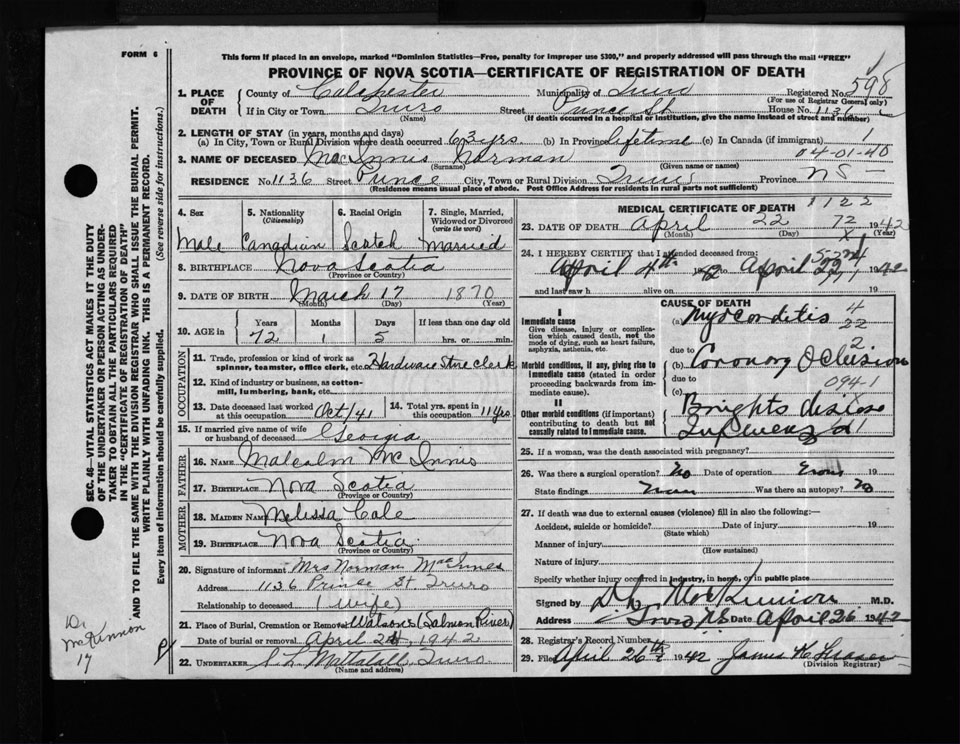 FORM 6
This form if placed in an envelope, marked "Dominion Statistics—Free, penalty for improper use $300," and properly addressed will pass through the mail "FREE"
PROVINCE OF NOVA SCOTIA—CERTIFICATE OF REGISTRATION OF DEATH
1. PLACE OF DEATH County of Colchester Municipality of Truro Registered No. 598
(For use of Registrar General only)
If in City or Town Truro Street Prince St House No. 1136
(Name) (If death occurred in a hospital or institution, give the name instead of street and number)
2. LENGTH OF STAY (in years, months and days)
(a) In City, Town or Rural Division where death occurred 63 yrs. (b) In Province lifetime (c) In Canada (if immigrant) 1
3. NAME OF DECEASED MacInnis Norman 04-01-40
(Surname) (Given name or names)
RESIDENCE No. 1136 Street Prince City, Town or Rural Division Truro Province NS —
(Residence means usual place of abode. Post Office Address for residents in rural parts not sufficient)
SEC. 46—VITAL STATISTICS ACT MAKES IT THE DUTY
OF THE UNDERTAKER OR PERSON ACTING AS UNDER-
TAKER TO OBTAIN ALL THE PARTICULARS REQUIRED
IN THE "CERTIFICATE OF REGISTRATION OF DEATH"
AND TO FILE THE SAME WITH THE DIVISION REGISTRAR WHO SHALL ISSUE THE BURIAL PERMIT.
WRITE PLAINLY WITH UNFADING INK. THIS IS A PERMANENT RECORD.
Every item of information should be carefully supplied. (See reverse side for instructions.)
4. Sex 5. Nationality (Citizenship) 6. Racial Origin 7. Single, Married, Widowed or Divorced (write the word)
Male Canadian Scotch Married
8. BIRTHPLACE Nova Scotia
(Province or Country)
9. DATE OF BIRTH March 17 1870
(Month) (Day) (Year)
10. AGE in Years Months Days If less than one day old
72 1 5 hrs. or min.
OCCUPATION
11. Trade, profession or kind of work as spinner, teamster, office clerk, etc. Hardware Store Clerk
12. Kind of industry or business, as cotton-mill, lumbering, bank, etc.
13. Date deceased last worked at this occupation Oct/41 14. Total yrs. spent in this occupation 11 yrs.
15. If married give name of wife or husband of deceased Georgia
FATHER
16. NAME Malcolm McInnis
17. BIRTHPLACE Nova Scotia
(Province or Country)
MOTHER
18. MAIDEN NAME Melissa Cale
19. BIRTHPLACE Nova Scotia
(Province or Country)
20. Signature of informant Mrs Norman MacInnes
Address 1136 Prince St. Truro
Relationship to deceased (Wife)
21. Place of Burial, Cremation or Removal Watsons (Salmon River)
Date of burial or removal April 24, 1942
22. UNDERTAKER S. L. Mattatall, Truro
(Name and address)
Dr
McKinnon
17
MEDICAL CERTIFICATE OF DEATH 1122
23. DATE OF DEATH April 22 72 1942
(Month) (Day) (Year)
24. I HEREBY CERTIFY that I attended deceased from:
April 4th to April 22 1942
and last saw h alive on 19
CAUSE OF DEATH
I
Immediate cause
Give disease, injury or complication which caused death, not the mode of dying, such as heart failure, asphyxia, asthenia, etc.
(a) Myocarditis 4
22
2
Morbid conditions, if any, giving rise to immediate cause (stated in order proceeding backwards from immediate cause).
due to
(b) Coronary Occlusion
due to 094-1
(c)
II
Other morbid conditions (if important) contributing to death but not causally related to immediate cause.
Brights disease
Influenza
25. If a woman, was the death associated with pregnancy?
26. Was there a surgical operation? No Date of operation 19
State findings Was there an autopsy? No
27. If death was due to external causes (violence) fill in also the following:—
Accident, suicide or homicide? Date of injury 19
(State which)
Manner of injury
(How sustained)
Nature of injury
Specify whether injury occurred in industry, in home, or in public place
Signed by McKinnon M.D.
Address Truro, N.S. Date April 26 1942
28. Registrar's Record Number
29. Filed April 26th 1942 James H. Fraser
(Division Registrar)